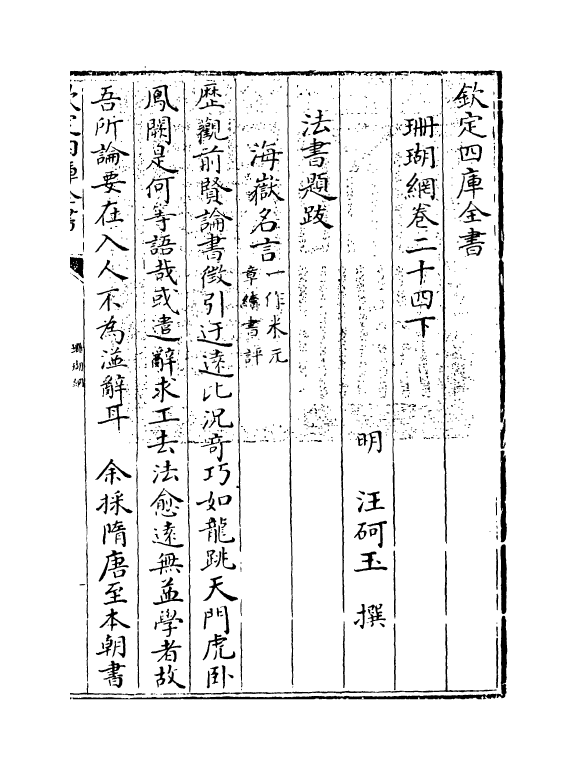 欽定四庫全書
珊瑚網卷二十四下
明 汪砢玉 撰
法書題跋
海嶽名言一作米元章續書評
歴觀前賢論書徴引迂遠比況奇巧如龍跳天門虎卧
鳳闕是何等語哉或遣辭求工去法愈遠無益學者故
吾所論要在入人不為溢辭耳 余採隋唐至本朝書
欽定四庫全書
珊瑚網